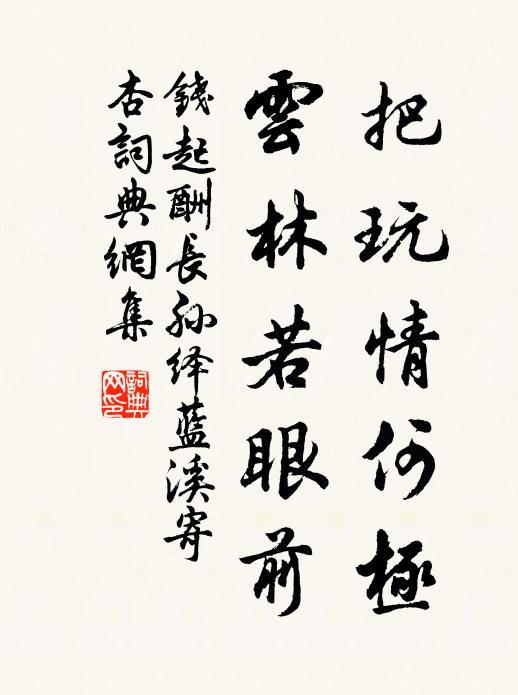 把玩情何極
雲林若眼前
錢起酬長孙绎藍溪寄
杏詞典網集
詞典
网印